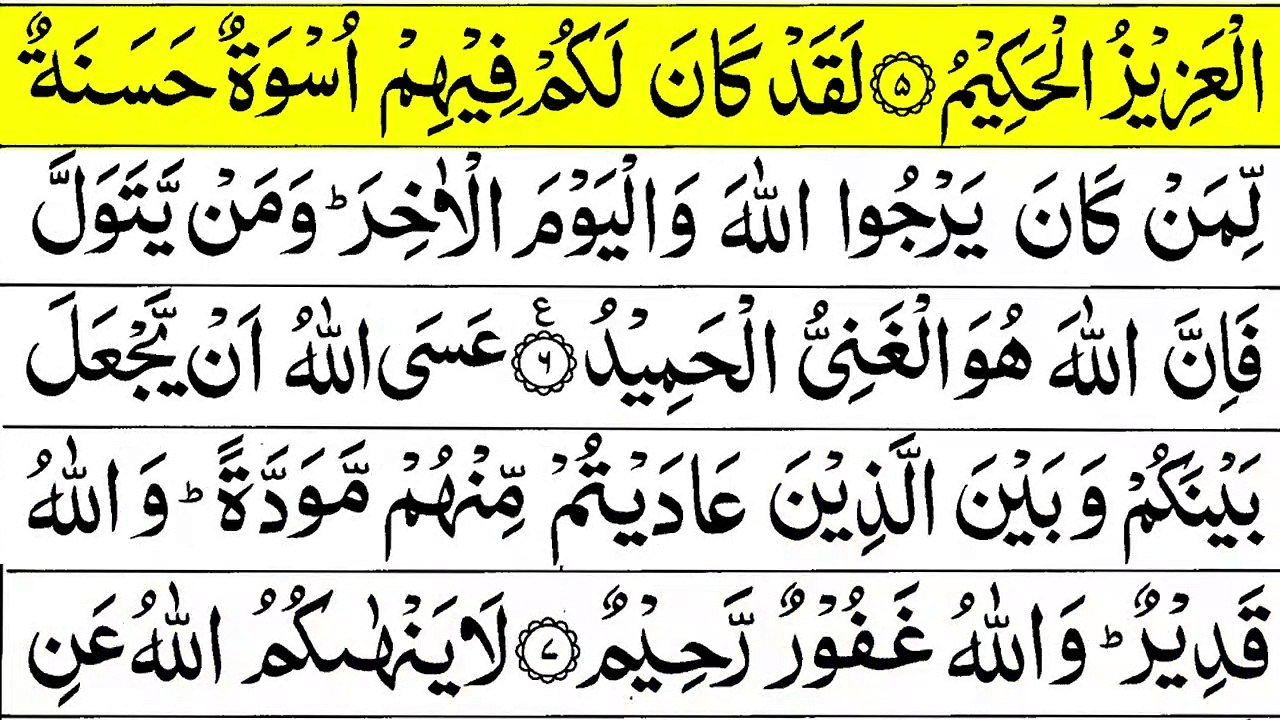 الْعَزِيْزُ الْحَكِيْمُ ۝۵ لَقَدْ كَانَ لَكُمْ فِيْهِمْ اُسْوَةٌ حَسَنَةٌ
لِّمَنْ كَانَ يَرْجُوا اللّٰهَ وَالْيَوْمَ الْاٰخِرَ ؕ وَمَنْ يَّتَوَلَّ
فَاِنَّ اللّٰهَ هُوَ الْغَنِىُّ الْحَمِيْدُ ۝۶ ع عَسَى اللّٰهُ اَنْ يَّجْعَلَ
بَيْنَكُمْ وَبَيْنَ الَّذِيْنَ عَادَيْتُمْ مِّنْهُمْ مَّوَدَّةً ؕ وَاللّٰهُ
قَدِيْرٌ ؕ وَاللّٰهُ غَفُوْرٌ رَّحِيْمٌ ۝۷ لَا يَنْهٰىكُمُ اللّٰهُ عَنِ